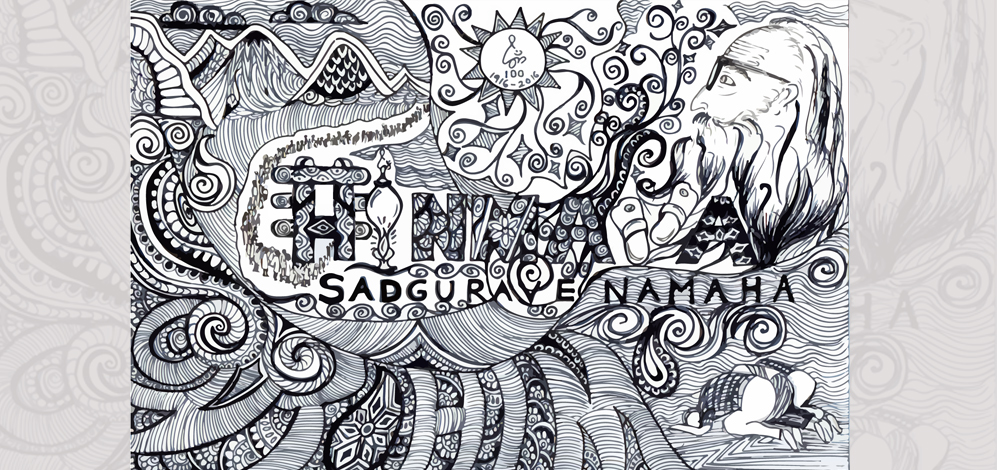 100
1916-2016
CHINMAYA
SADGURAVE NAMAHA